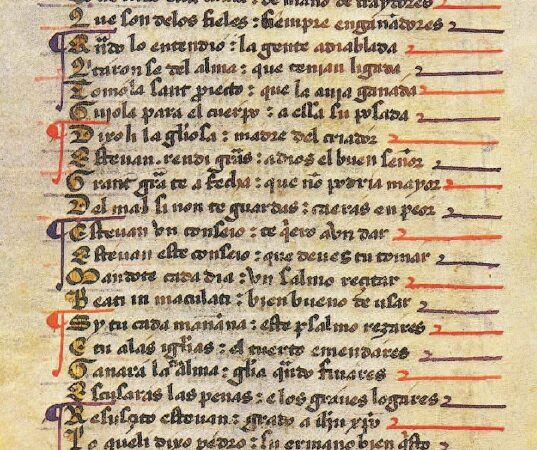 de mano de traydores
Que son delos fieles : siempre engañadores
Quãdo lo entendio : la gente adiablada
Quitaron se del alma : que tenian ligada
Tomola sant proiecto : que la auia ganada
Guiola para el cuerpo : a ella su posada
Dixoli la gl̃iosa : madre del criador
Esteuan . rendi grãs : a dios el buen señor
Grant grã te a fecha : que nõ podria mayor
Del mal si non te guardas : caeras en peor
Esteuan vn conseio : te q̃ero avn dar
Esteuan este conseio : que deues tu tomar
Mandote cada dia : vn salmo recitar
Beati in maculati : bien bueno de usar
Sy tu cada mañana : este psalmo rezares
E tu alas igl̃ias : el tuerto emendares
Ganara la tu alma : gl̃ia quãdo finares
Escusaras las penas : e los graues logares
Resuscito esteuan : grado a ihũ xp̃o
Lo que li dixo pedro : su ermano bien q̃sto